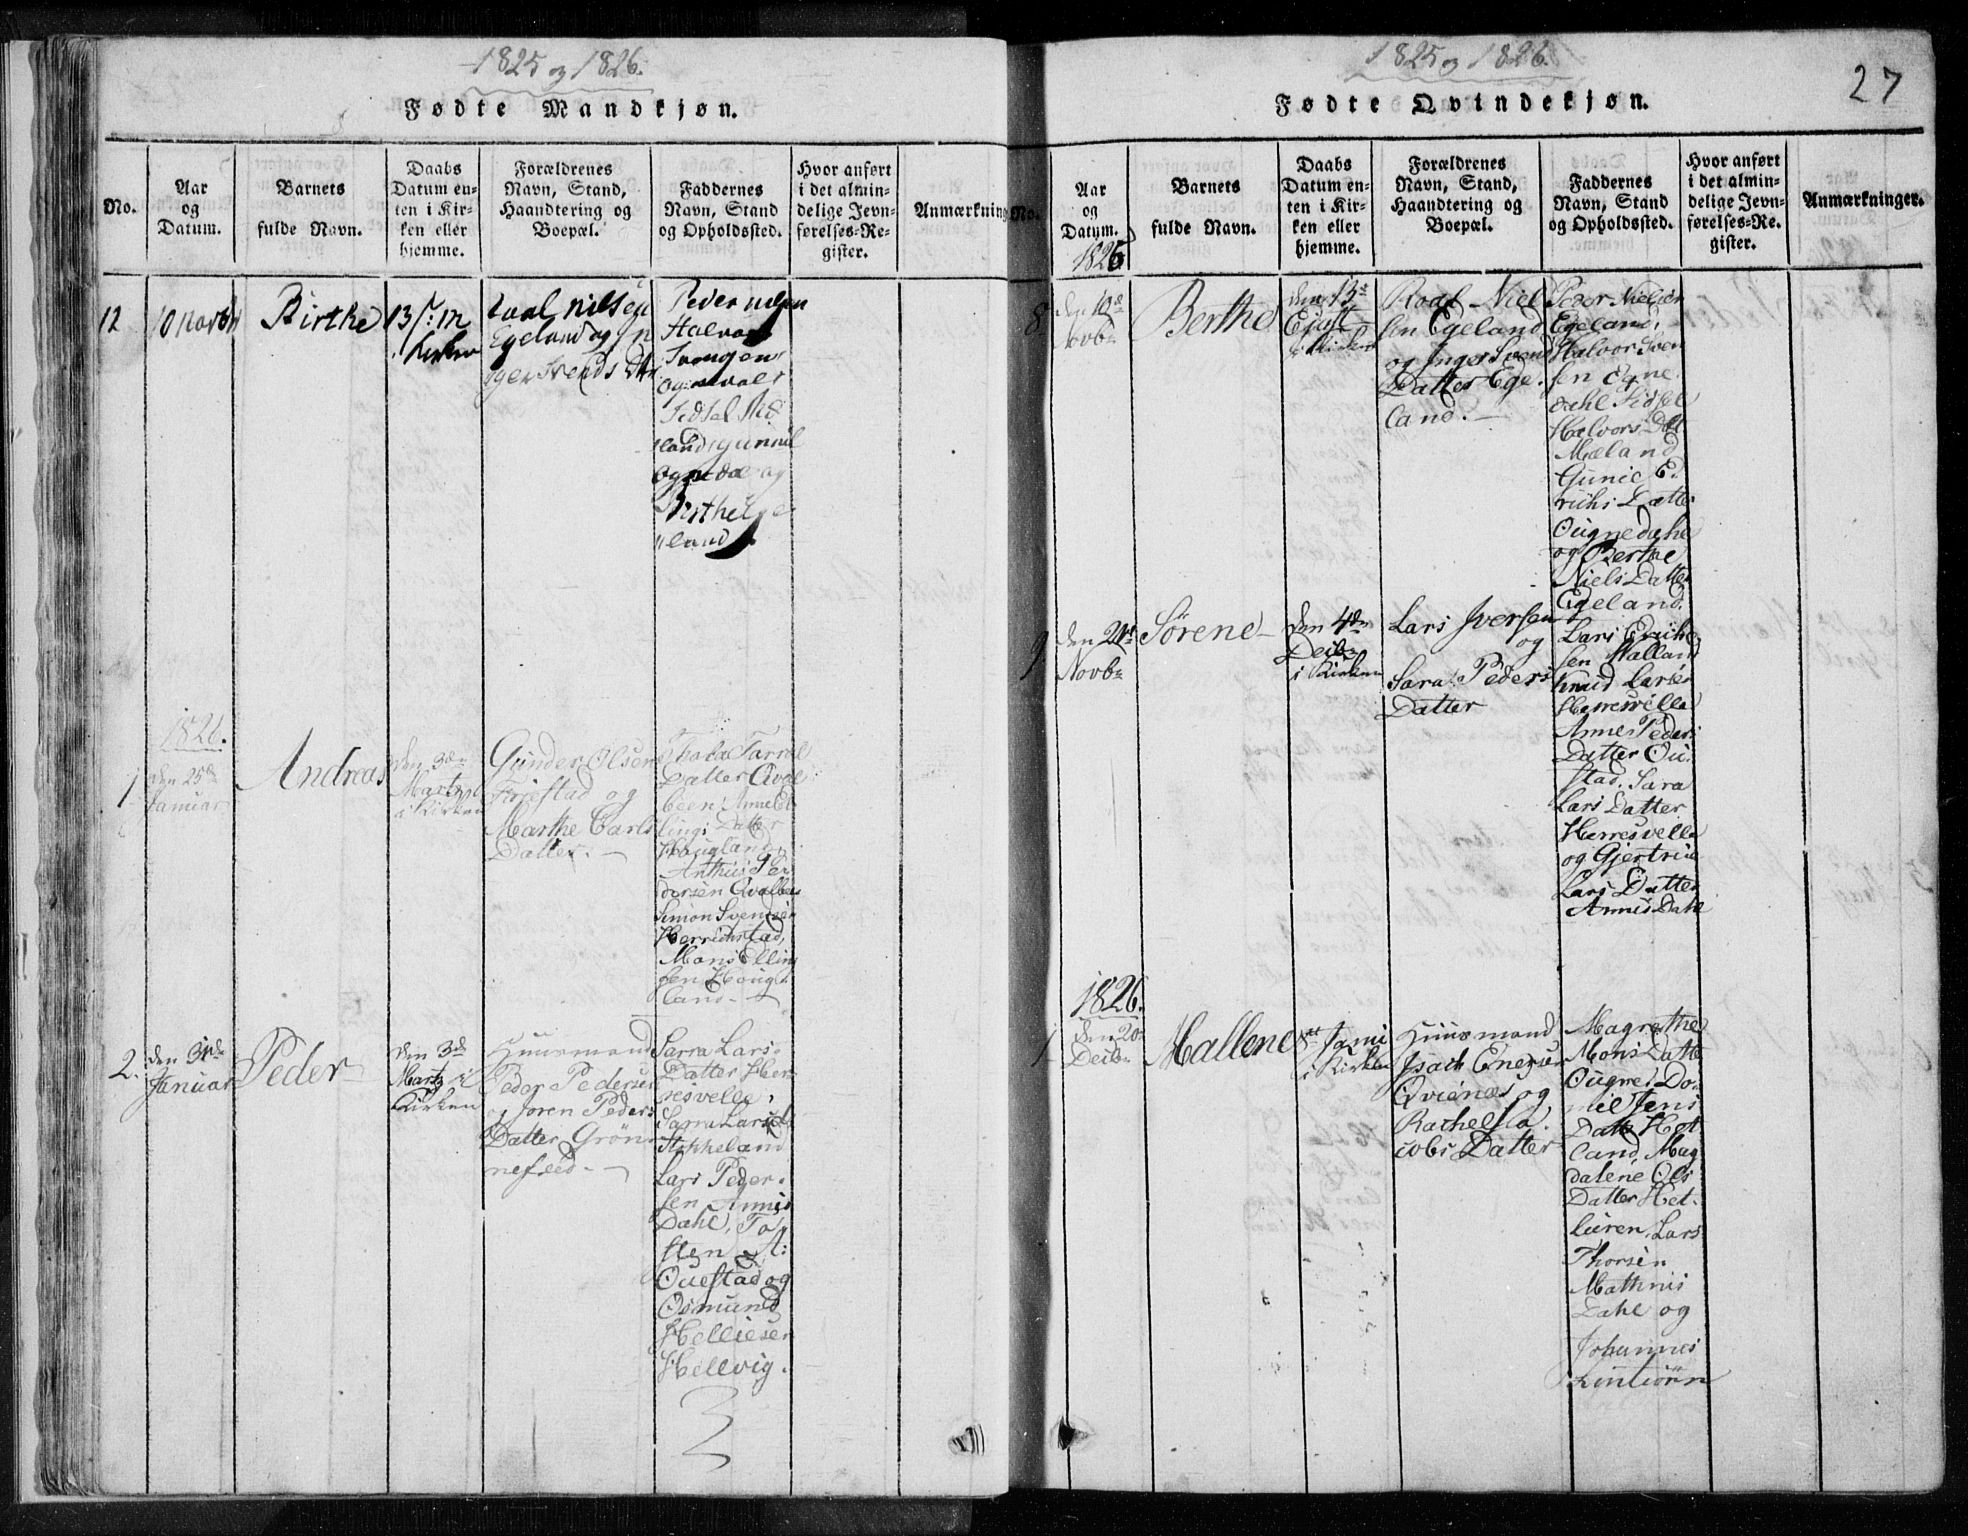 1825 og 1826.
Fødte Mandkjøn.
No.
Aar
og
Datum.
Barnets
fulde Navn.
Daabs
Datum en-
ten i Kir-
ken eller
hjemme.
Forældrenes
Navn, Stand,
Haandtering og
Boepæl.
Faddernes
Navn, Stand
og Opholdssted.
Hvor anført
i det almin-
delige Jevn-
førelses-Re-
gister.
Anmærkning
12
10 Novbr
Birthe
13
Kirken
Nilsen
Egeland og In
ger Svends Dtr
Peder
Halvor
Svendsen
Sidsel Mæ
land, Gunnil
og
Birthe
land
1826.
1
den 25de
Januar
Andreas
den 3de
Marty
i Kirken
Gunder Olsen
Fijestad og
Marthe Carls
Datter. —
Datter Qval
been
lings Datter
Hougland,
Anthus Pe
dersen Qvalbeen
Simon Svendsen
Herrestad,
Mons Elling
sen Houg
land —
2.
den 31de
Januar
Peder
den 3de
Marty i
Kirken
Huusmand
Peder Pedersen
og Joren Peders
Datter Grøn
nesled —
Sarra Lars
Datter Her
resvelle,
Sarra Larsd.
Stokkeland
Lars Peder
sen Annis
Dahl, To
sten A:
Ouestad og
Osmund
Helliesen
Hellvig.
1825 og 1826.
27
Fødte Qvindekjøn.
No.
Aar
og
Datum.
Barnets
fulde Navn.
Daabs
Datum en-
ten i Kir-
ken eller
hjemme.
Forældrenes
Navn, Stand,
Haandtering og
Boepæl.
Faddernes
Navn, Stand
og Opholdssted.
Hvor anført
i det almin-
delige Jevn-
førelses-Re-
gister.
Anmærkninger.
1825
8
den 10de
Novbr
Berthe
den 13de
i Kirken
Roal Niel
sen Egeland
og Inger Svends
Datter Ege
land. —
Peder Nielsen
Egeland,
Halvor Sven
sen Ogne
dahl Sidsel
Halvors Dat
Mæland
Gunil E
richs Datter
Ougnedahl
og Berthe
Niels Datter
Egeland.
9
den 24de
Novbr
Sørene
den 4de
Decbr
i Kirken
Lars Iversen
og
Sara Peders
Datter
Lars Erich
sen Malland
Knud Larsen
Herresvelle
Anne Peders
Datter Ou
stad, Sara
Lars Datter
Herresvelle
og Gjertrue
Lars Datter
Annis Dahl
1826.
1
den 20de
Decbr
Mallene
Janu
i Kirken
Huusmand
Isach Enersen
Qvienes og
Rachel Ja
cobs Datter
Magrethe
Mons Datter
Ougne, Do
mil Jens
Datt Het
land, Mag
dalene Ols
Datter Het
luren, Lars
Thorsen
Mathnis
Dahl og
Johannes